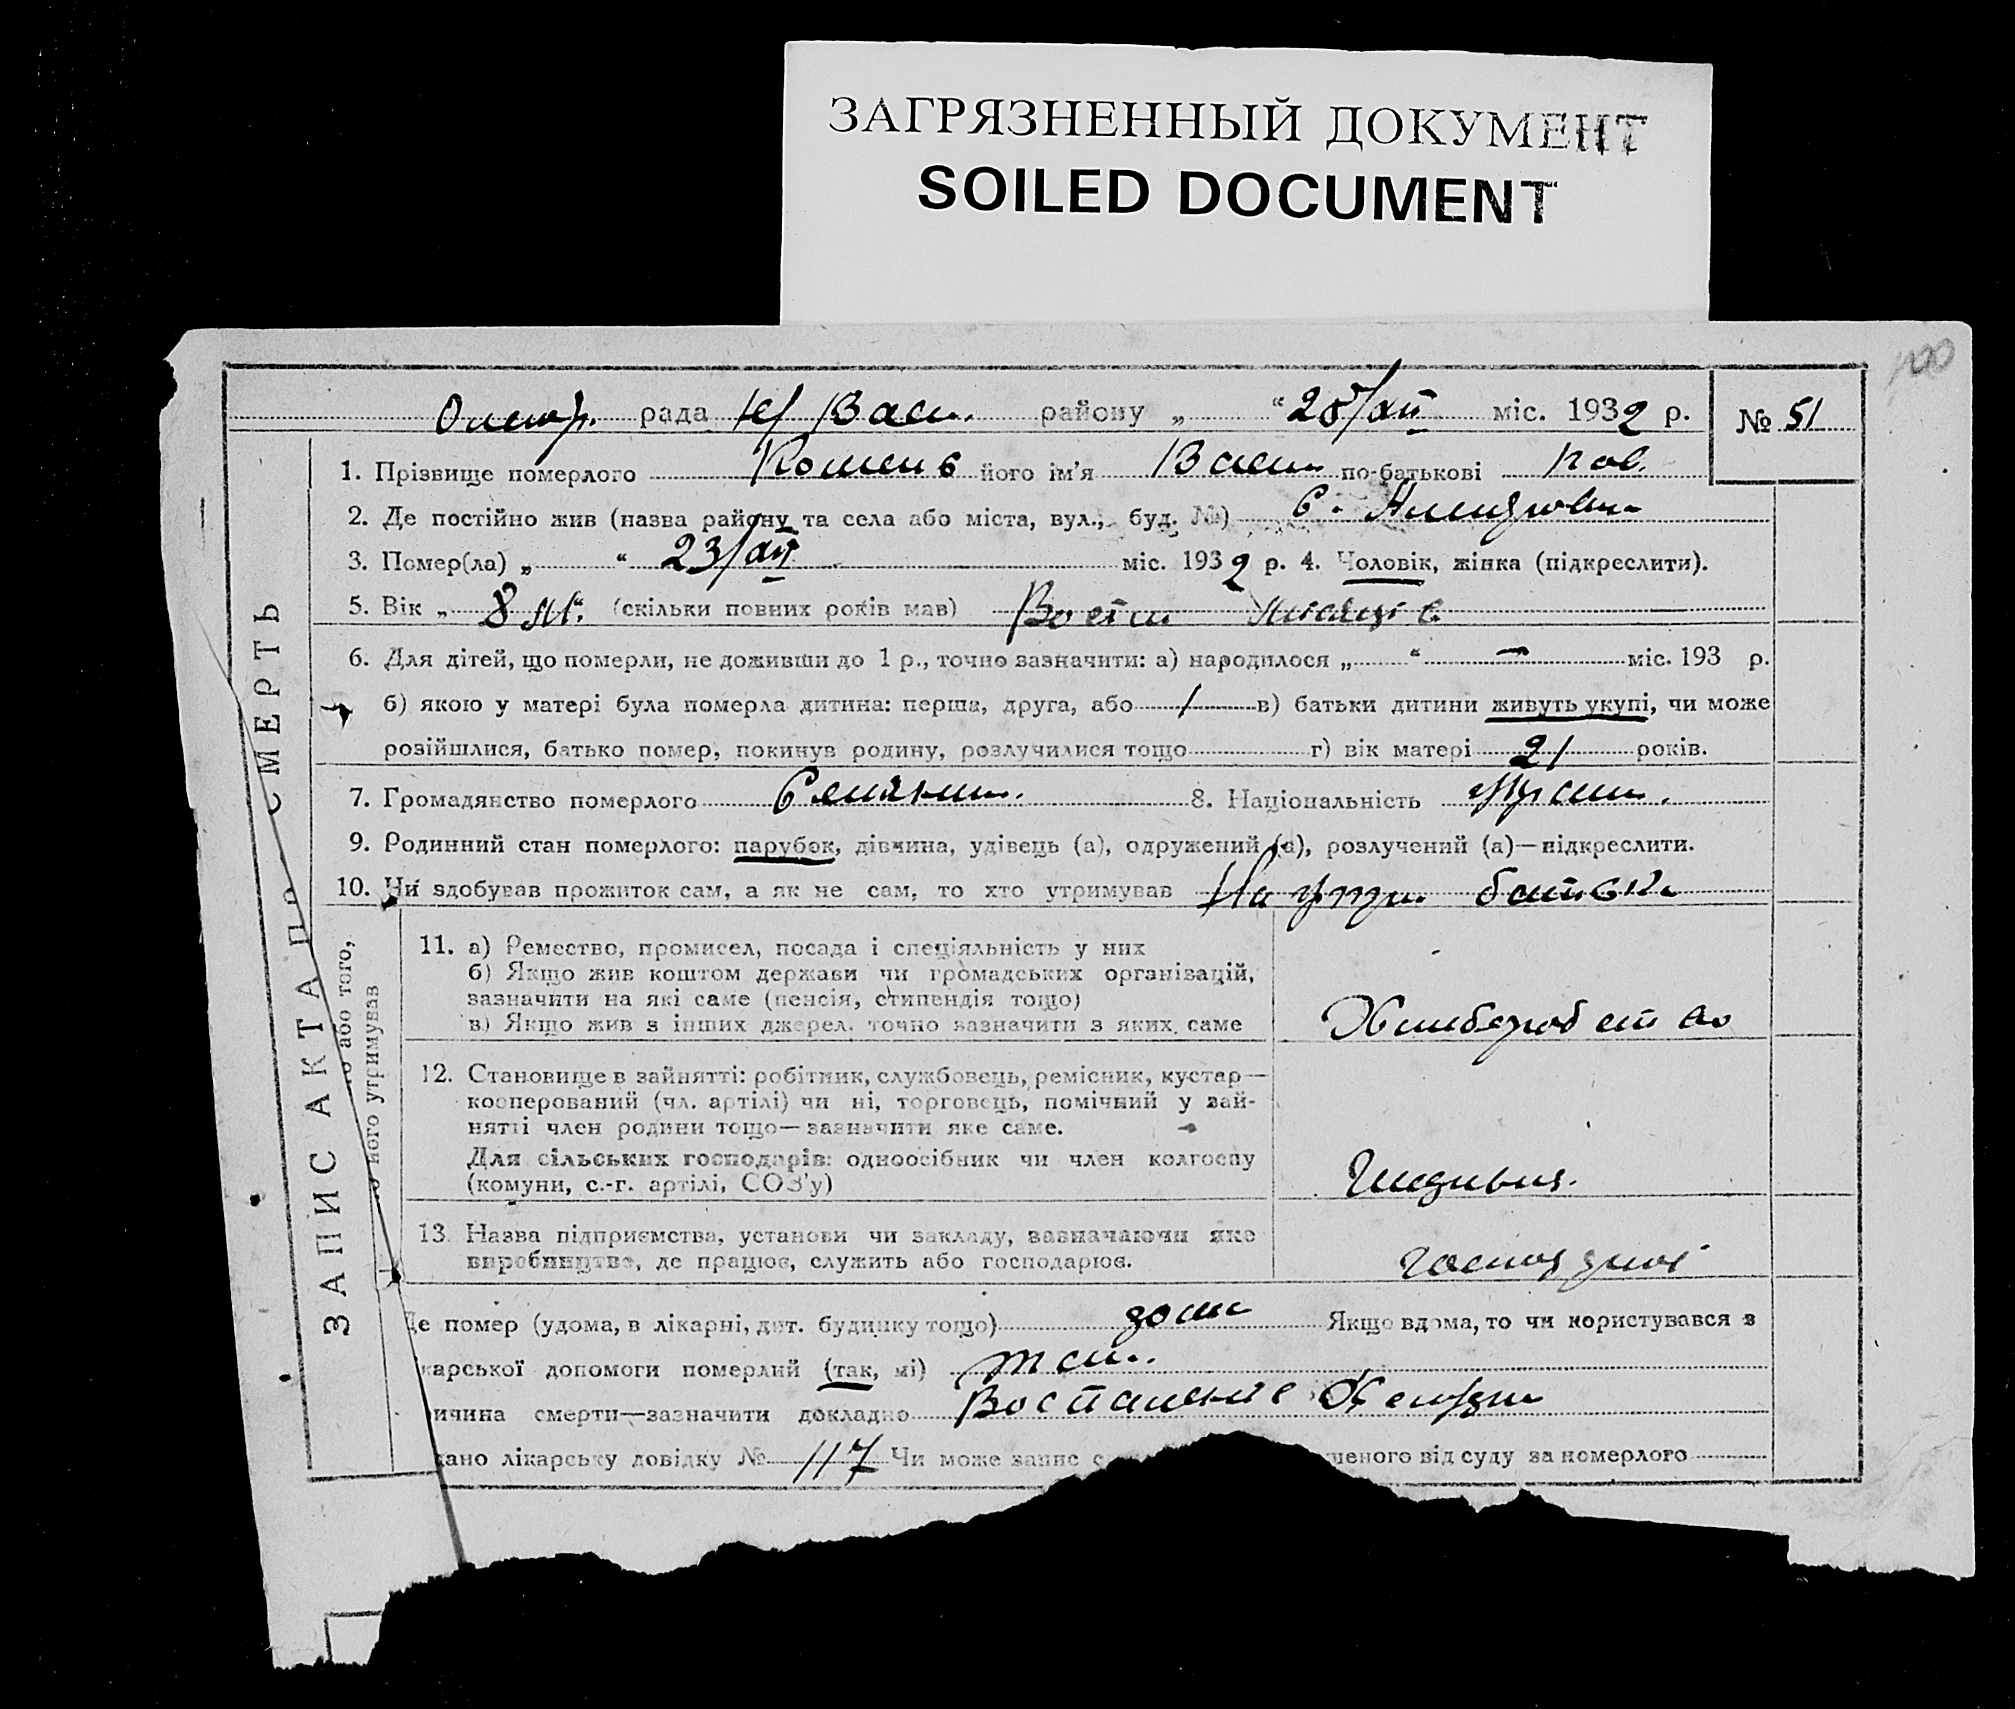 ЗАГРЯЗНЕННЫЙ ДОКУМЕНТ
SOILED DOCUMENT
100
рада Н/Васи. району „ “ 25/XII міс. 1932 р. № 51
1. Прізвище померлого його ім'я Васи по-батькові Пав.
2. Де постійно жив (назва району та села або міста, вул., буд. №) с.
3. Помер(ла) „ “ 23/XII міс. 1932 р. 4. Чоловік, жінка (підкреслити).
5. Вік „ 8 м.“ (скільки повних років мав) Восім місяців
6. Для дітей, що померли, не доживши до 1 р., точно зазначити: а) народилося „ “ — міс. 193 р.
б) якою у матері була померла дитина: перша, друга, або / в) батьки дитини живуть укупі, чи може
розійшлися, батько помер, покинув родину, розлучилися тощо г) вік матері 21 років.
7. Громадянство померлого Селянин. 8. Національність
9. Родинний стан померлого: парубок, дівчина, удівець (а), одружений (а), розлучений (а)—підкреслити.
10. Чи здобував прожиток сам, а як не сам, то хто утримував На утри. батька
11. а) Ремество, промисел, посада і спеціяльність у них
б) Якщо жив коштом держави чи громадських організацій,
зазначити на які саме (пенсія, стипендія тощо)
в) Якщо жив з інших джерел, точно зазначити з яких саме Хлиборобство
12. Становище в зайнятті: робітник, службовець, ремісник, кустар—
кооперований (чл. артілі) чи ні, торговець, помічний у зай-
нятті член родини тощо—зазначити яке саме.
Для сільських господарів: одноосібник чи член колгоспу
(комуни, с.-г. артілі, СОЗ'у)
13. Назва підприємства, установи чи закладу, зазначаючи яке
виробництво, де працює, служить або господарює.
Де помер (удома, в лікарні, дит. будинку тощо) дома Якщо вдома, то чи користувався з
карської допомоги померлий (так, ні) так.
ичина смерти—зазначити докладно Воспаление
дано лікарську довідку № 117 Чи може запис с шеного від суду за померлого
ЗАПИС АКТА ПРО СМЕРТЬ
або того,
його утримував